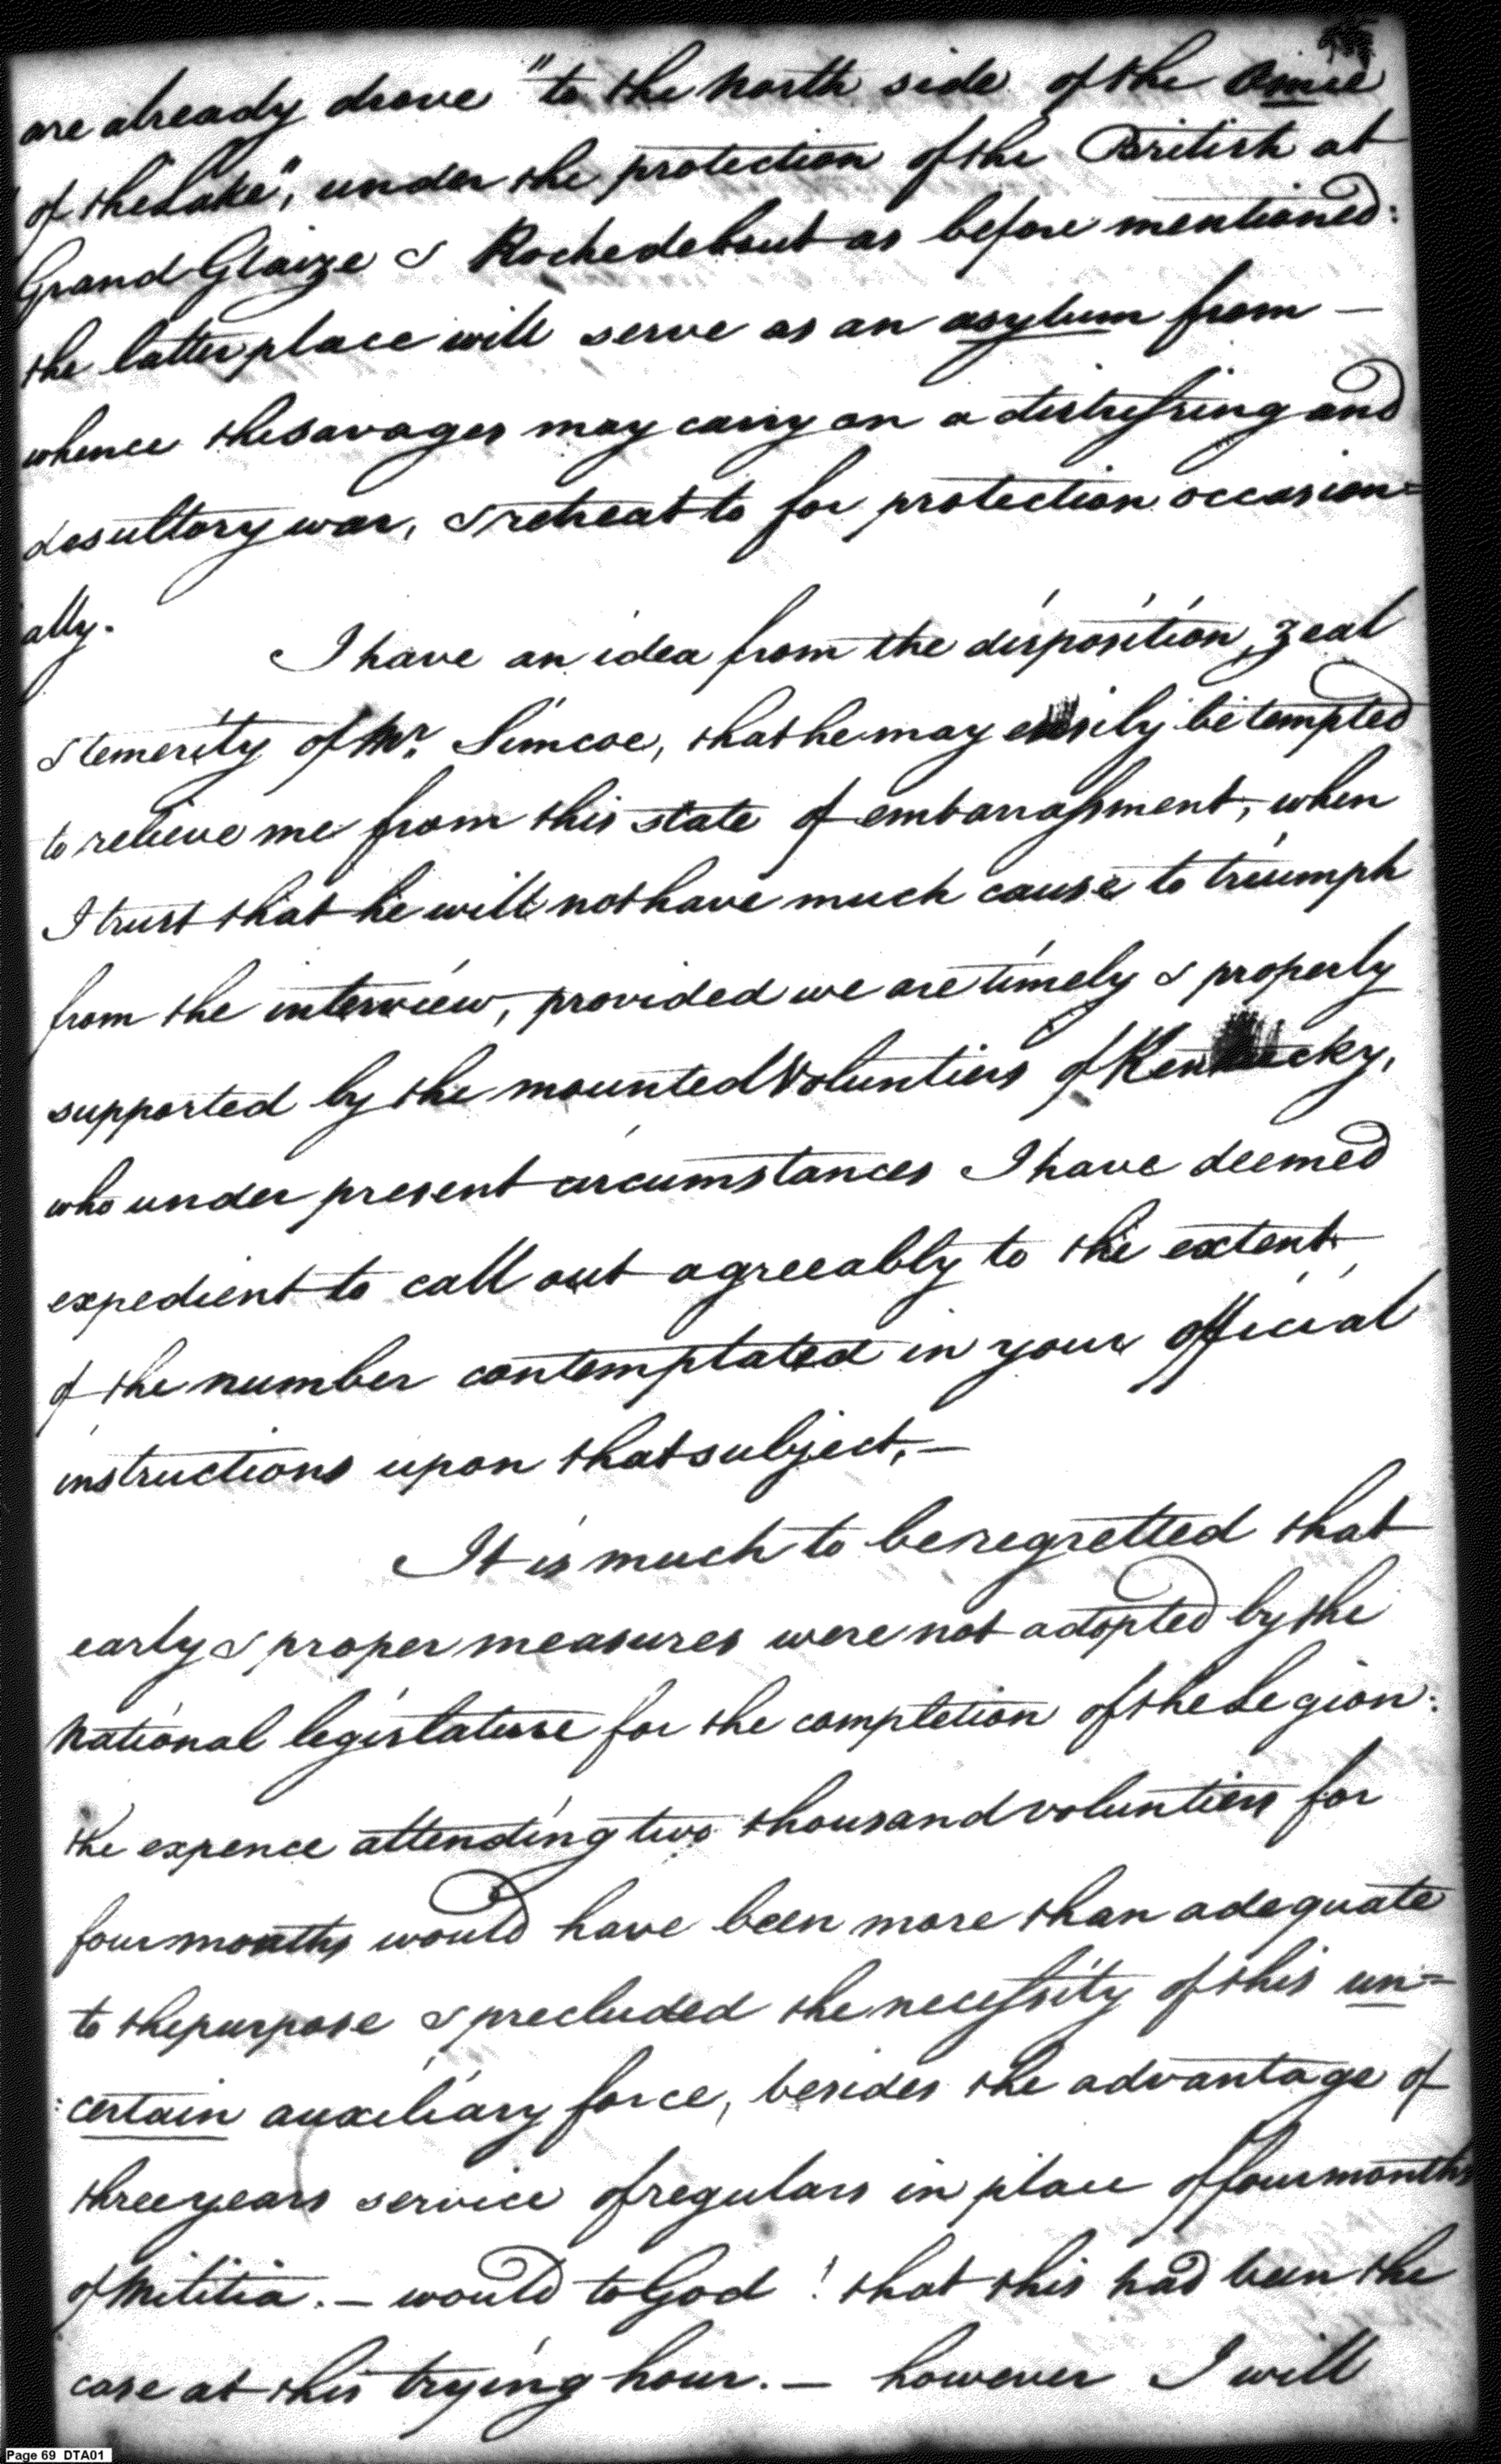 are already drove "to the North side of the Omie
"of the Lake", under the protection of the British at
Grand Glaize & Rochedebout as before mentioned:
the latter place will serve as an asylum from —
whence the savages may carry on a distressing and
desultory war, & retreat to for protection occasion=
ally.
I have an idea from the disposition, zeal
& temerity of Mr. Simcoe, that he may easily be tempted
to relieve me from this state of embarrassment, when
I trust that he will not have much cause to triumph
from the interview, provided we are timely & properly
supported by the mounted Voluntiers of Kentucky,
who under present circumstances I have deemed
expedient to call out agreeably to the extent —
of the number contemplated in your official
instructions upon that subject, —
It is much to be regretted that
early & proper measures were not adopted by the
National legislature for the completion of the Legion:
the expence attending two thousand voluntiers for
four months would have been more than adequate
to the purpose & precluded the necessity of this un=
:certain auxiliary force, besides the advantage of
three years service of regulars in place of four months
of Militia. — would to God! that this had been the
case at this trying hour. — however I will
Page 69 DTA01